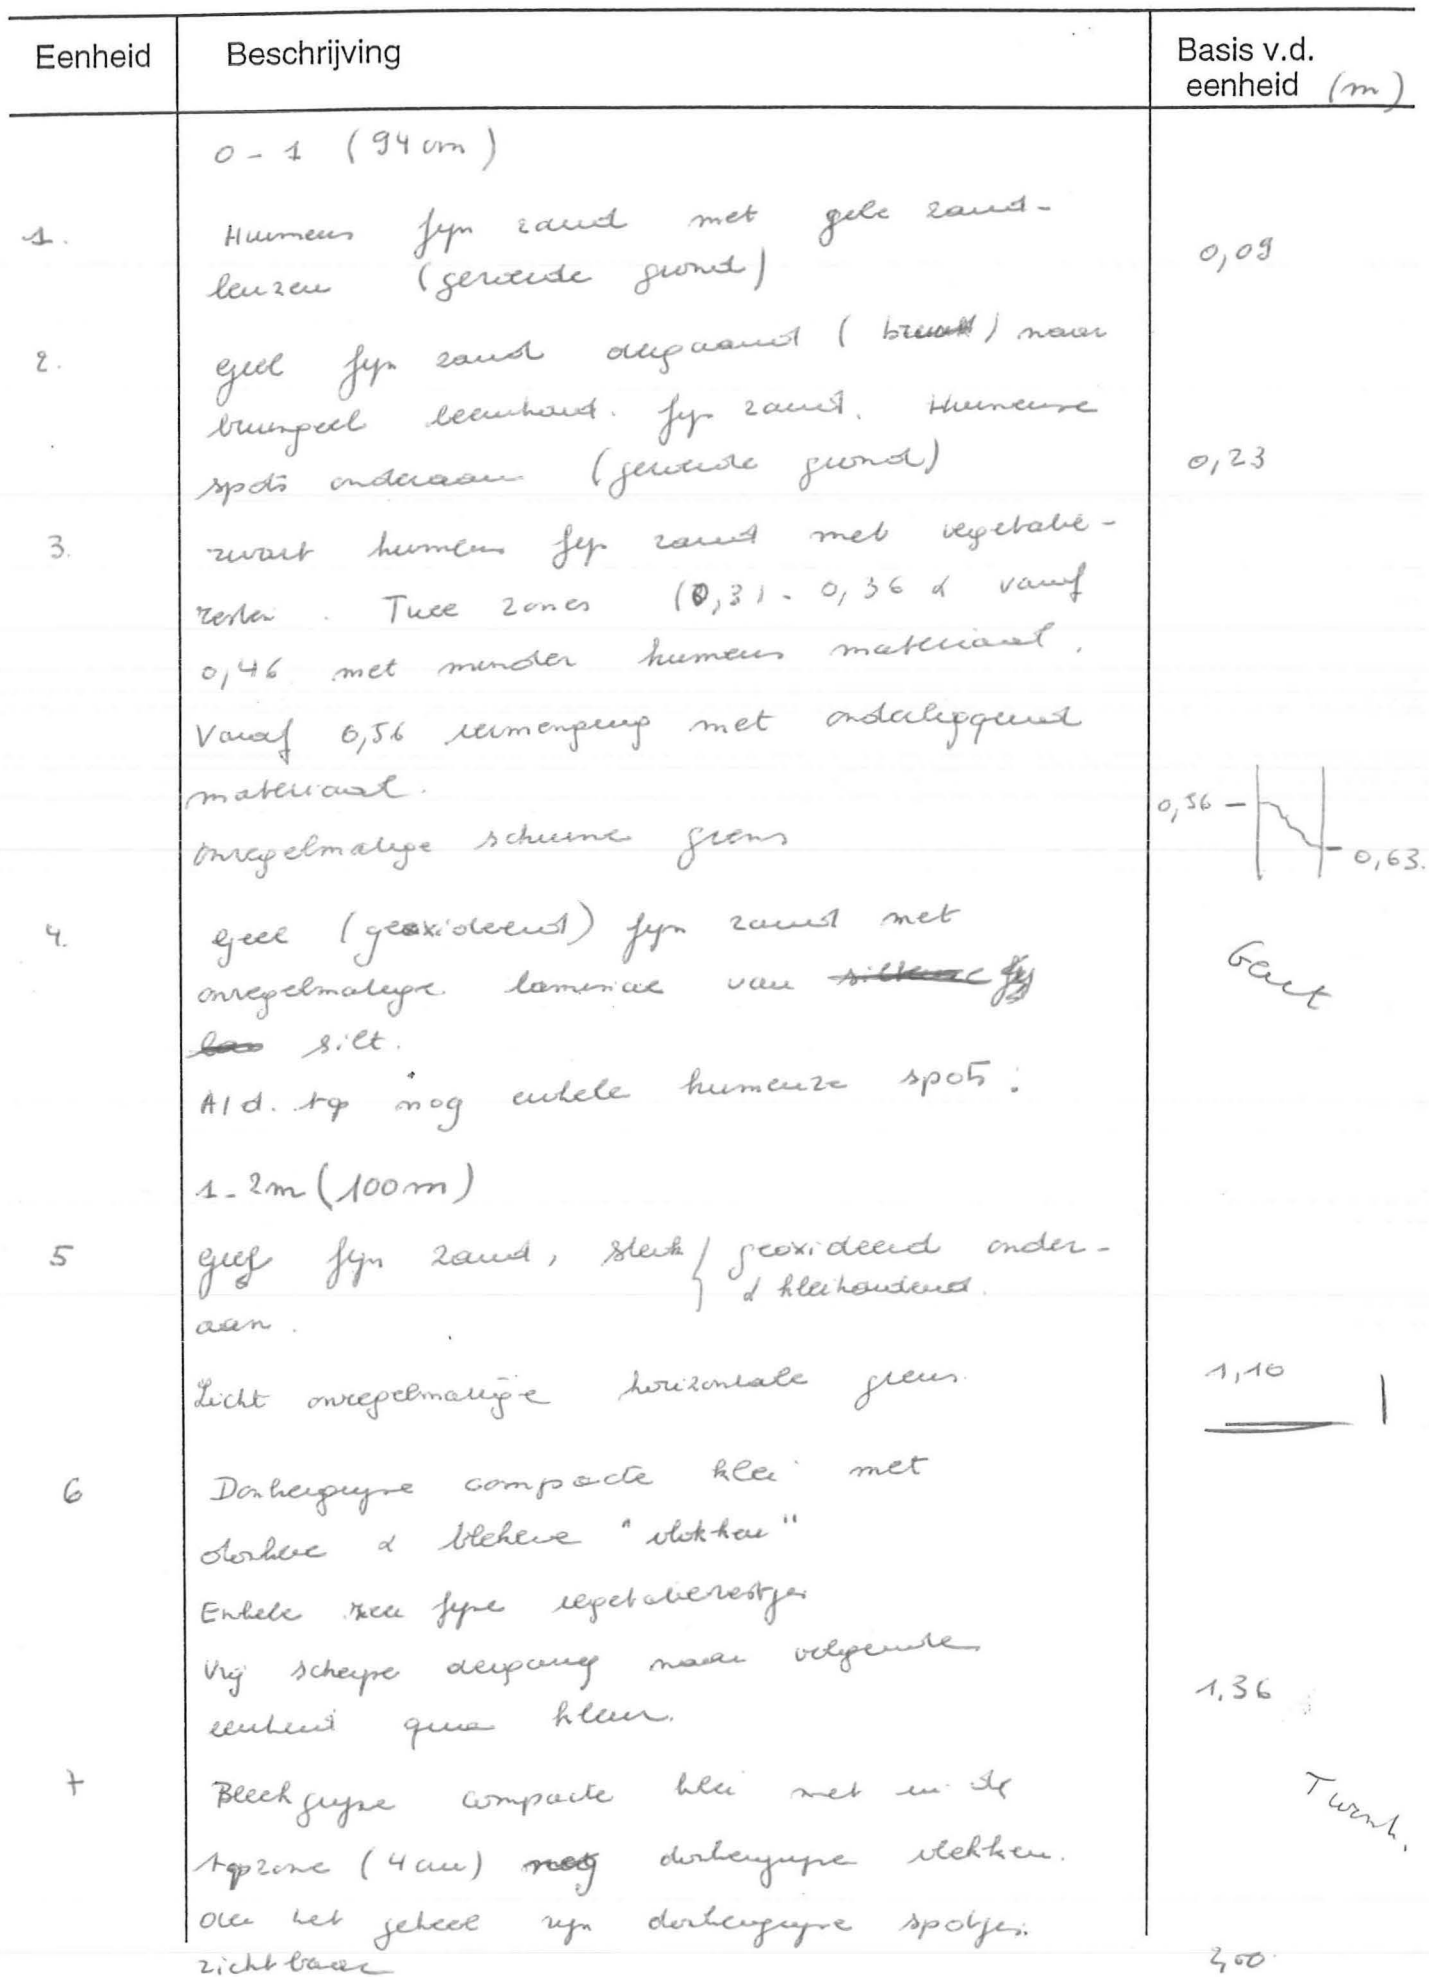 Eenheid Beschrijving Basis v.d. eenheid (m)
0 - 1 (94 cm)
1. Humeus fijn zand met gele zand-
lenzen (geroerde grond) 0,09
2. Geel fijn zand overgaand ( ) naar
bruingeel leemhoud. fijn zand. Humeuse
spots onderaan (geroerde grond) 0,23
3. zwart humeus fijn zand met vegetatie-
resten. Twee zones (0,31 - 0,36 & vanaf
0,46 met minder humeus materiaal.
Vanaf 0,56 vermenging met onderliggend
materiaal. 0,56
onregelmatige schuine grens 0,63.
4. Geel (geoxideerd) fijn zand met
onregelmatige laminae van
silt.
A/d. top nog enkele humeuze spots.
1 - 2m (100m)
5 fijn zand, sterk { geoxideerd onder-
& kleihoudend.
aan.
Licht onregelmatige horizontale grens. 1,10
6 Donkergrijze compacte klei met
donkere & blekere "vlokken"
Enkele zeer fijne vegetatierestjes
Vrij scherpe overgang naar volgende
eenheid qua kleur. 1,36
7 Bleekgrijze compacte klei met in de
topzone (4 cm) nog donkergrijze vlekken. Turnh.
Over het geheel zijn donkergrijze spotjes
zichtbaar 2,00